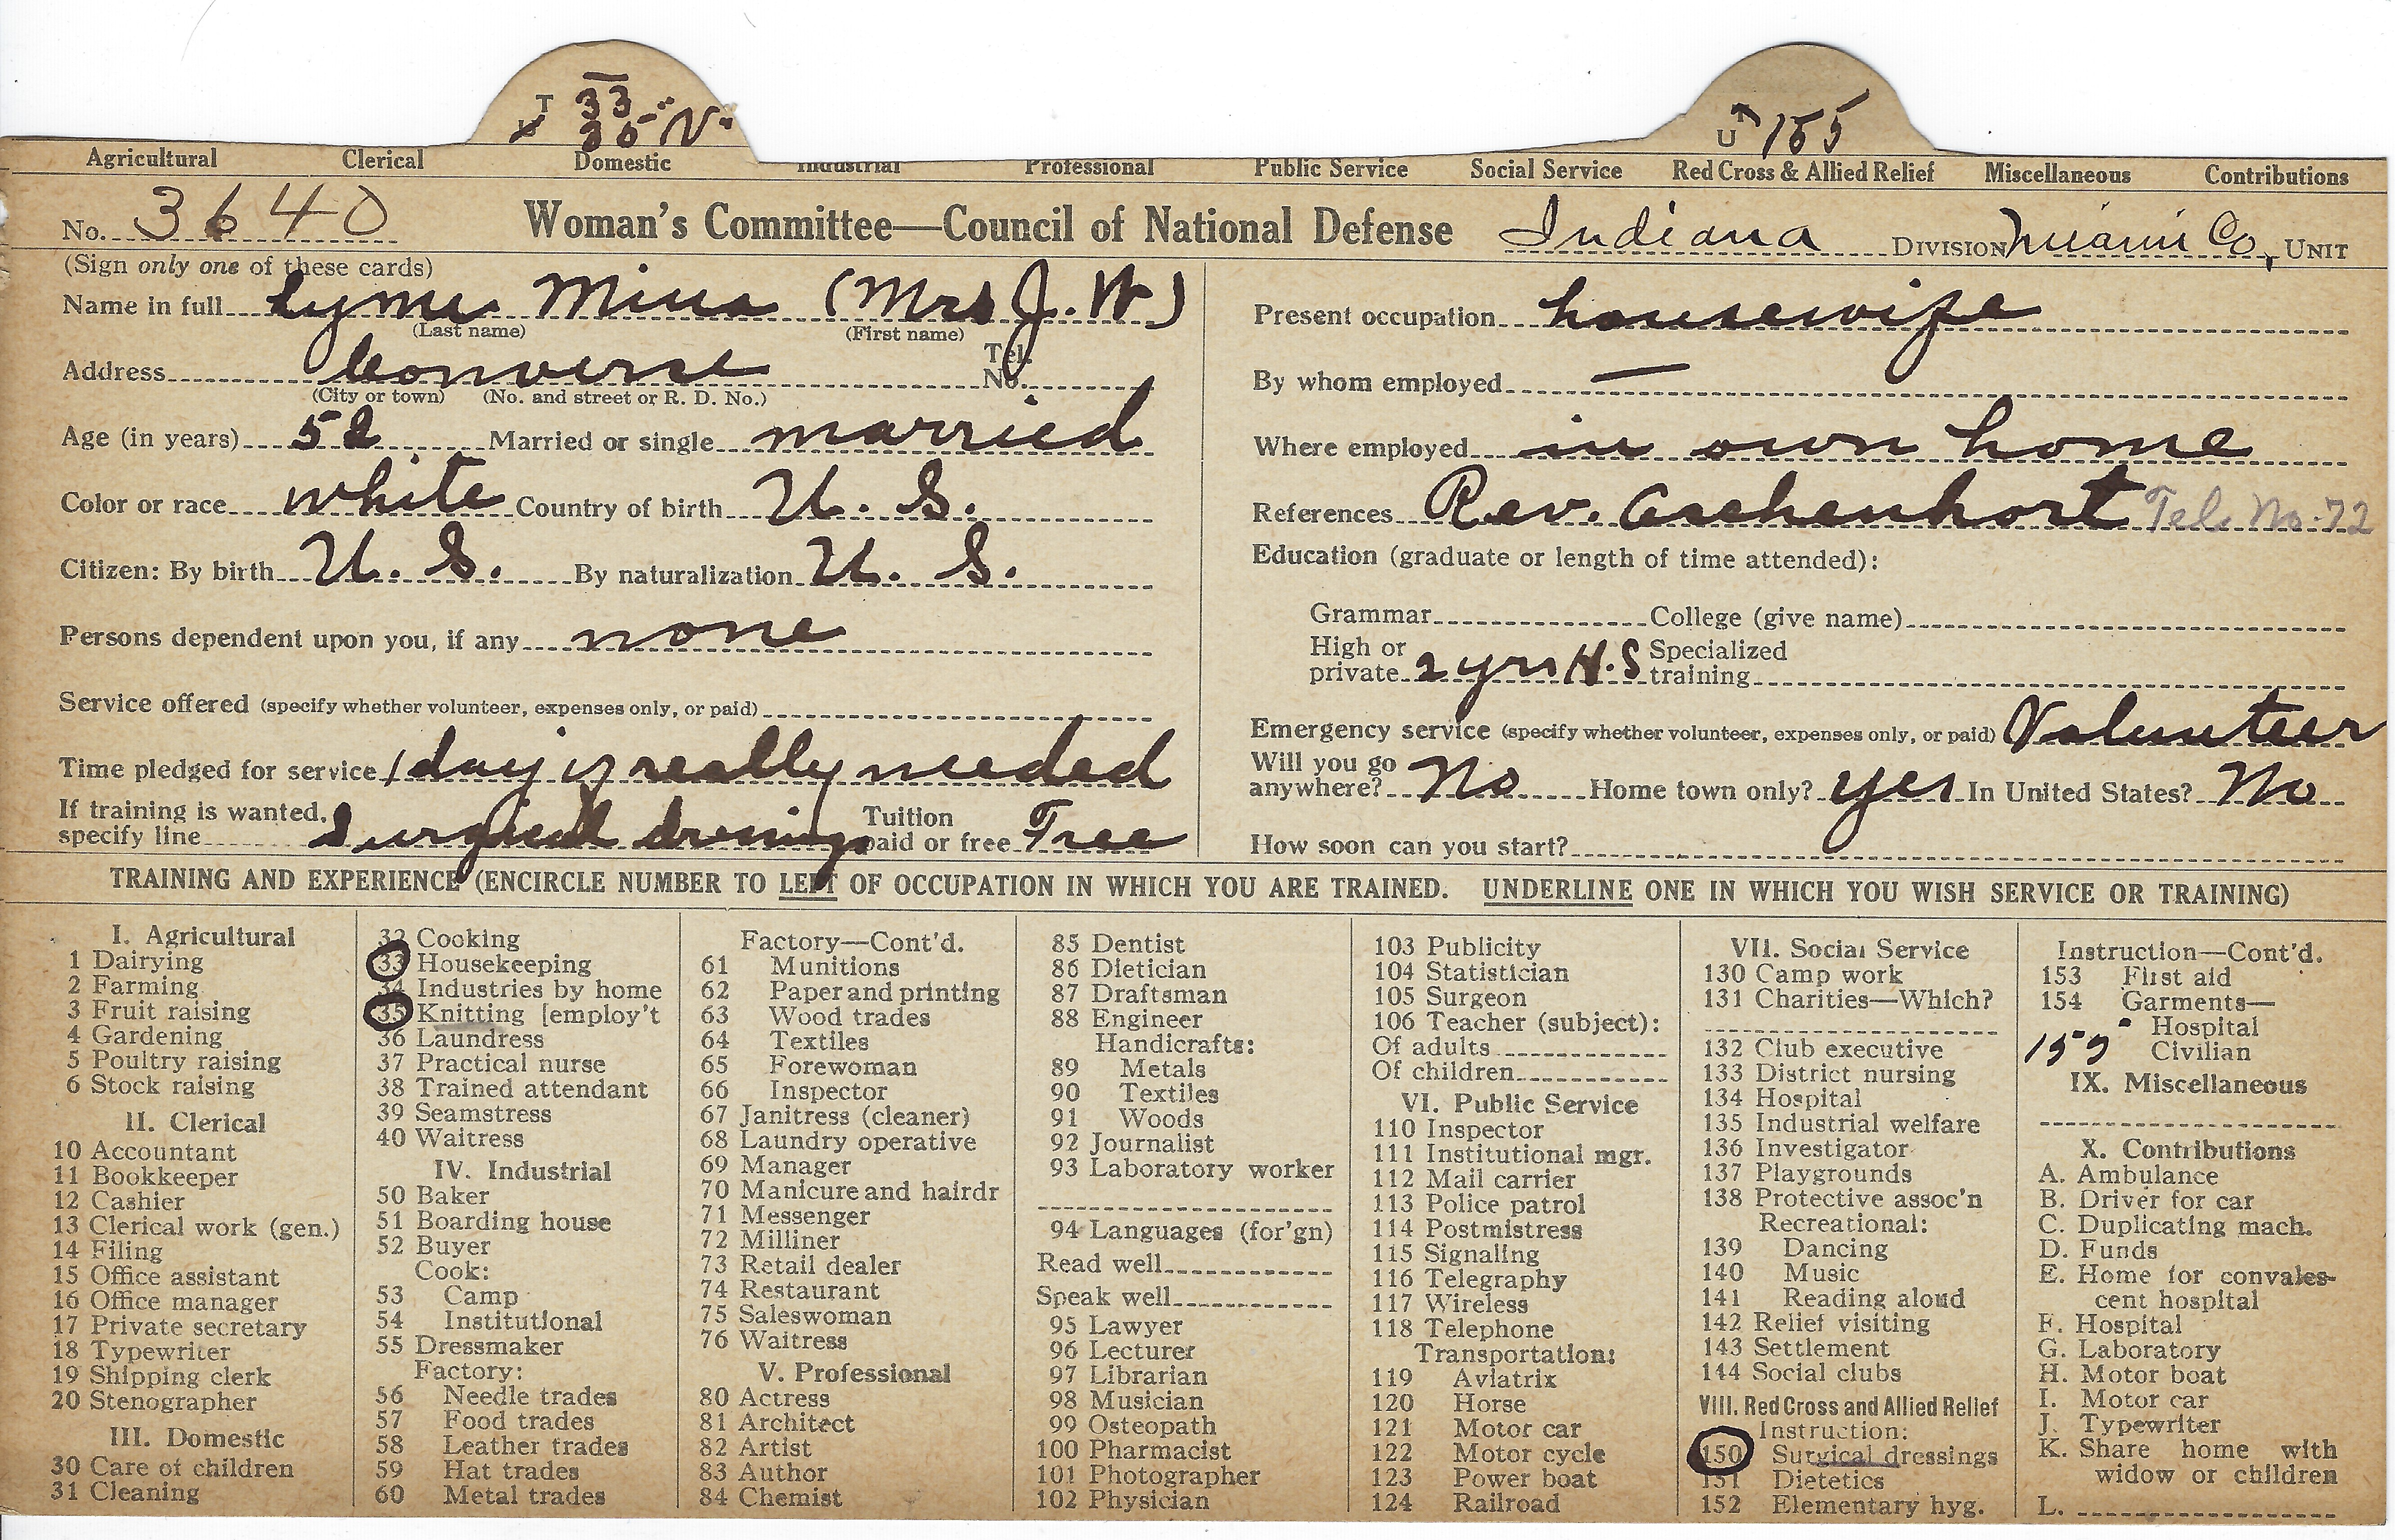 T 33
35 V
U 155
Agricultural Clerical Domestic Industrial Professional Public Service Social Service Red Cross & Allied Relief Miscellaneous Contributions
No. 3640 Woman's Committee—Council of National Defense Indiana DIVISION Miami Co, UNIT
(Sign only one of these cards)
Name in full Lyme Mina (Mrs J. W)
(Last name) (First name)
Address Converse Tel. No.
(City or town) (No. and street or R. D. No.)
Age (in years) 52 Married or single married
Color or race white Country of birth U. S.
Citizen: By birth U. S. By naturalization U. S.
Persons dependent upon you, if any none
Service offered (specify whether volunteer, expenses only, or paid)
Time pledged for service 1 day if really needed
If training is wanted, specify line Surgical dressings Tuition paid or free Free
Present occupation housewife
By whom employed —
Where employed in own home
References Rev. Aschenhort Tel. No. 72
Education (graduate or length of time attended):
Grammar College (give name)
High or private 2 yrs H.S Specialized training
Emergency service (specify whether volunteer, expenses only, or paid) Volunteer
Will you go anywhere? No Home town only? yes In United States? No
How soon can you start?
TRAINING AND EXPERIENCE (ENCIRCLE NUMBER TO LEFT OF OCCUPATION IN WHICH YOU ARE TRAINED. UNDERLINE ONE IN WHICH YOU WISH SERVICE OR TRAINING)
I. Agricultural
1 Dairying
2 Farming
3 Fruit raising
4 Gardening
5 Poultry raising
6 Stock raising
II. Clerical
10 Accountant
11 Bookkeeper
12 Cashier
13 Clerical work (gen.)
14 Filing
15 Office assistant
16 Office manager
17 Private secretary
18 Typewriter
19 Shipping clerk
20 Stenographer
III. Domestic
30 Care of children
31 Cleaning
32 Cooking
33 Housekeeping
34 Industries by home
35 Knitting [employ't
36 Laundress
37 Practical nurse
38 Trained attendant
39 Seamstress
40 Waitress
IV. Industrial
50 Baker
51 Boarding house
52 Buyer
Cook:
53 Camp
54 Institutional
55 Dressmaker
Factory:
56 Needle trades
57 Food trades
58 Leather trades
59 Hat trades
60 Metal trades
Factory—Cont'd.
61 Munitions
62 Paper and printing
63 Wood trades
64 Textiles
65 Forewoman
66 Inspector
67 Janitress (cleaner)
68 Laundry operative
69 Manager
70 Manicure and hairdr
71 Messenger
72 Milliner
73 Retail dealer
74 Restaurant
75 Saleswoman
76 Waitress
V. Professional
80 Actress
81 Architect
82 Artist
83 Author
84 Chemist
85 Dentist
86 Dietician
87 Draftsman
88 Engineer
Handicrafts:
89 Metals
90 Textiles
91 Woods
92 Journalist
93 Laboratory worker
94 Languages (for'gn)
Read well
Speak well
95 Lawyer
96 Lecturer
97 Librarian
98 Musician
99 Osteopath
100 Pharmacist
101 Photographer
102 Physician
103 Publicity
104 Statistician
105 Surgeon
106 Teacher (subject):
Of adults
Of children
VI. Public Service
110 Inspector
111 Institutional mgr.
112 Mail carrier
113 Police patrol
114 Postmistress
115 Signaling
116 Telegraphy
117 Wireless
118 Telephone
Transportation:
119 Aviatrix
120 Horse
121 Motor car
122 Motor cycle
123 Power boat
124 Railroad
VII. Social Service
130 Camp work
131 Charities—Which?
132 Club executive
133 District nursing
134 Hospital
135 Industrial welfare
136 Investigator
137 Playgrounds
138 Protective assoc'n
Recreational:
139 Dancing
140 Music
141 Reading aloud
142 Relief visiting
143 Settlement
144 Social clubs
VIII. Red Cross and Allied Relief
Instruction:
150 Surgical dressings
151 Dietetics
152 Elementary hyg.
Instruction—Cont'd.
153 First aid
154 Garments—
Hospital
155 Civilian
IX. Miscellaneous
X. Contributions
A. Ambulance
B. Driver for car
C. Duplicating mach.
D. Funds
E. Home for convales-
cent hospital
F. Hospital
G. Laboratory
H. Motor boat
I. Motor car
J. Typewriter
K. Share home with
widow or children
L.